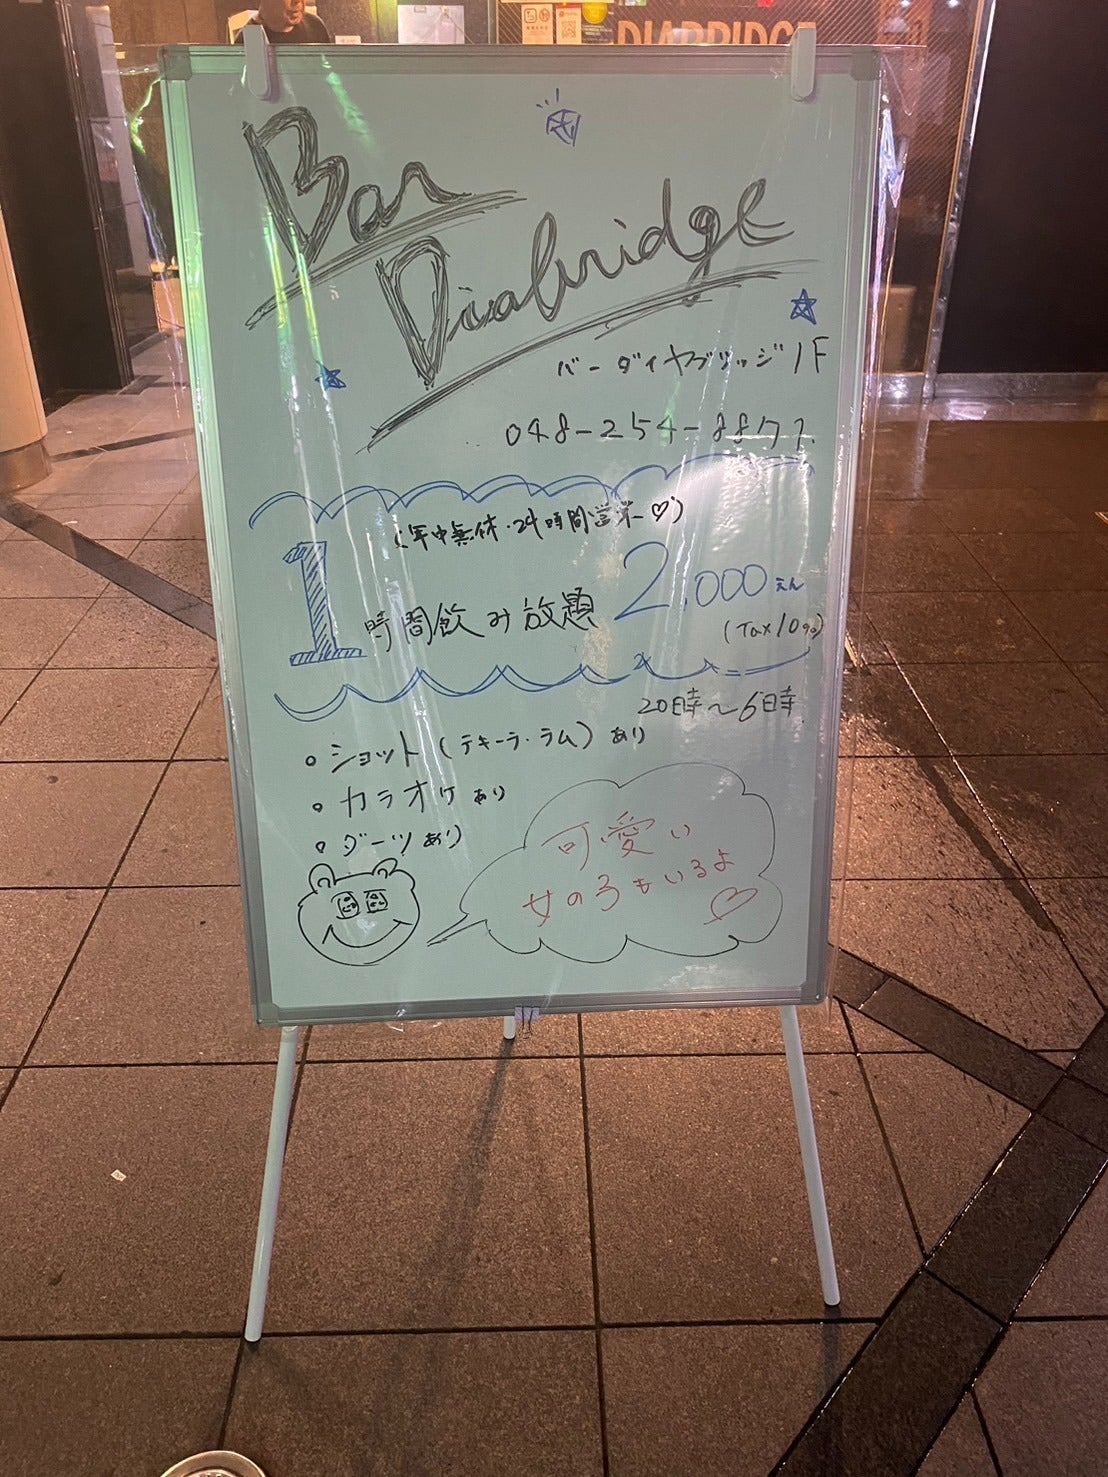 DIABRIDGE
Bar
Diabridge
バーダイヤブリッジ 1F
048-254-8871
(年中無休・24時間営業♡)
1時間飲み放題 2,000えん
(Tax10%)
20時〜6時
・ショット(テキーラ・ラム)あり
・カラオケあり
・ダーツあり
可愛い
女の子もいるよ